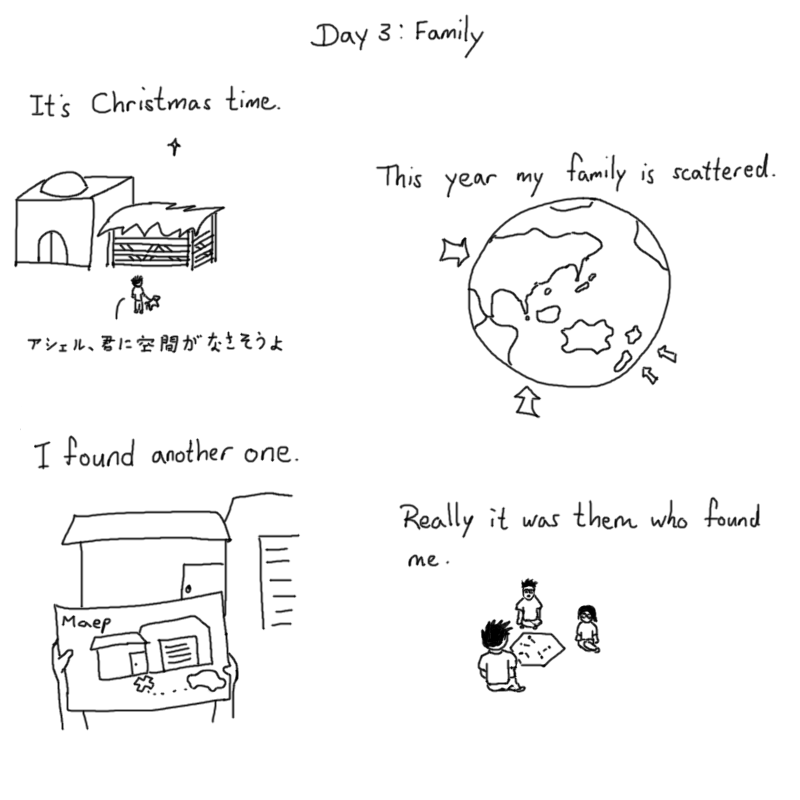 Day 3: Family
It's Christmas time.
アシェル、君に空間がなさそうよ
This year my family is scattered.
I found another one.
Maep
Really it was them who found
me.